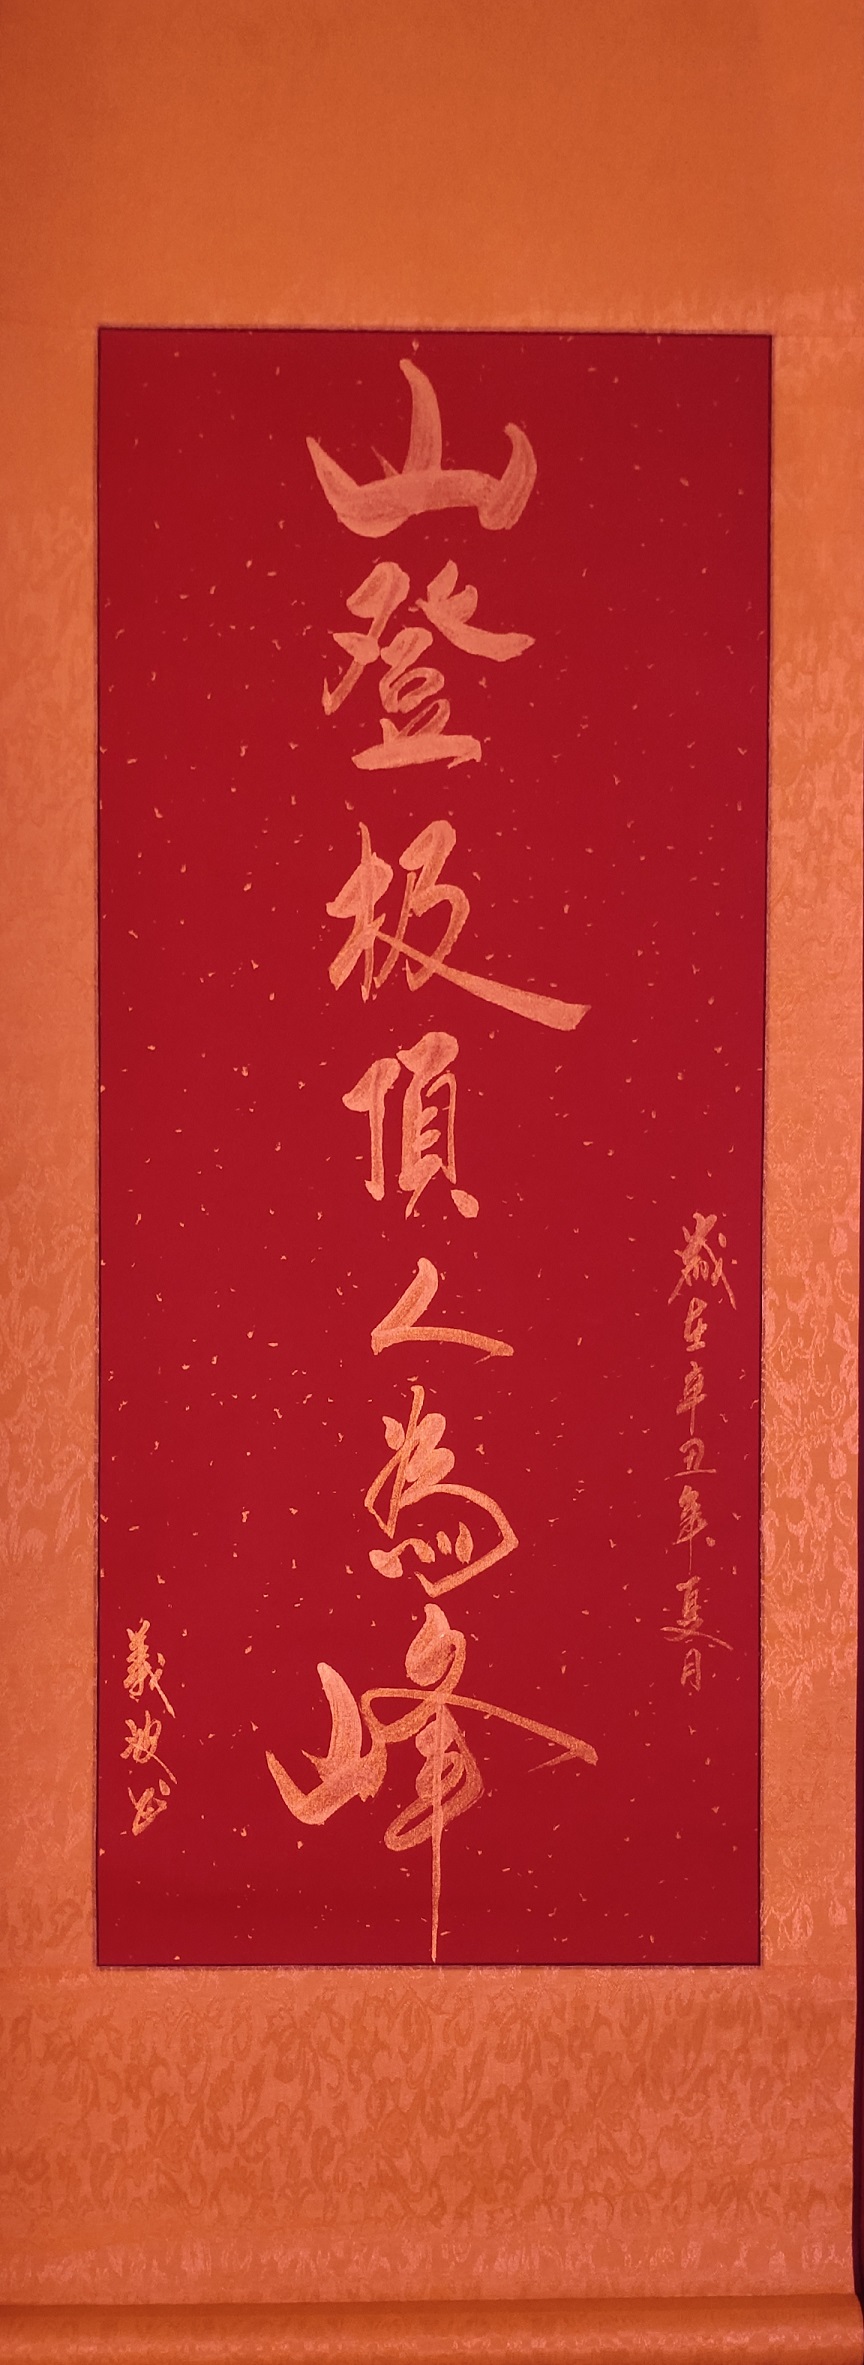 歲在辛丑年夏月
山登极頂人為峰
義波书